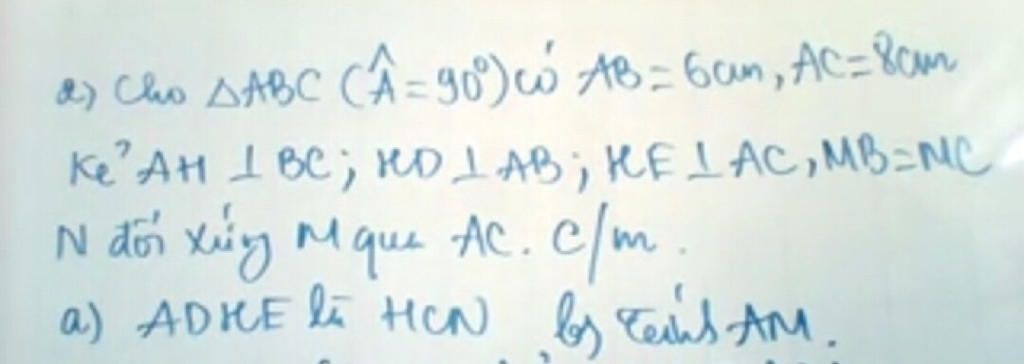 2) Cho △ABC (Â=90°) có AB=6cm, AC=8cm
Kẻ AH ⊥ BC; HD ⊥ AB; HE ⊥ AC, MB=MC
N đối xứng M qua AC. C/m.
a) ADHE là HCN b) Tính AM.